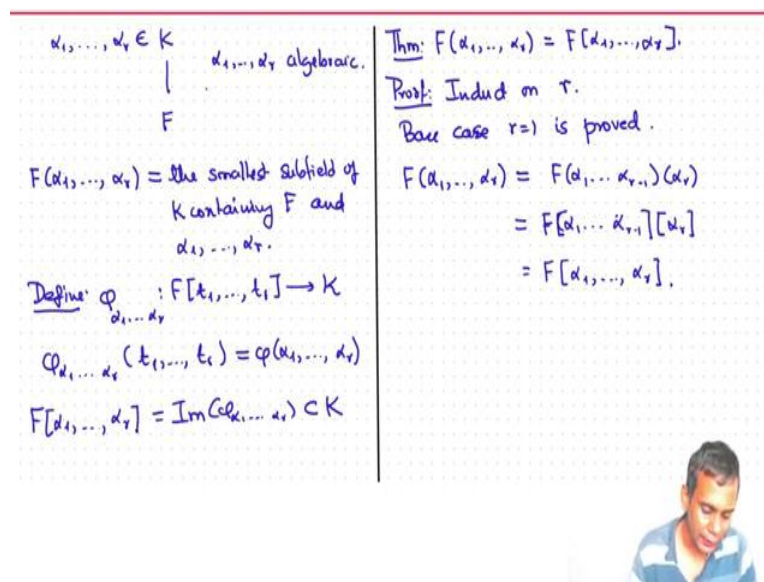 α₁, ..., αᵣ ∈ K
|
F
α₁, ..., αᵣ algebraic.
F(α₁, ..., αᵣ) = the smallest subfield of
K containing F and
α₁, ..., αᵣ.
Define: φ_{α₁...αᵣ} : F[t₁, ..., t₁] → K
φ_{α₁...αᵣ}(t₁, ..., tᵣ) = φ(α₁, ..., αᵣ)
F[α₁, ..., αᵣ] = Im(φ_{α₁...αᵣ}) ⊂ K
Thm: F(α₁, .., αᵣ) = F[α₁, ..., αᵣ].
Proof: Induct on r.
Base case r=1 is proved.
F(α₁, .., αᵣ) = F(α₁...αᵣ₋₁)(αᵣ)
= F[α₁...αᵣ₋₁][αᵣ]
= F[α₁, ..., αᵣ].